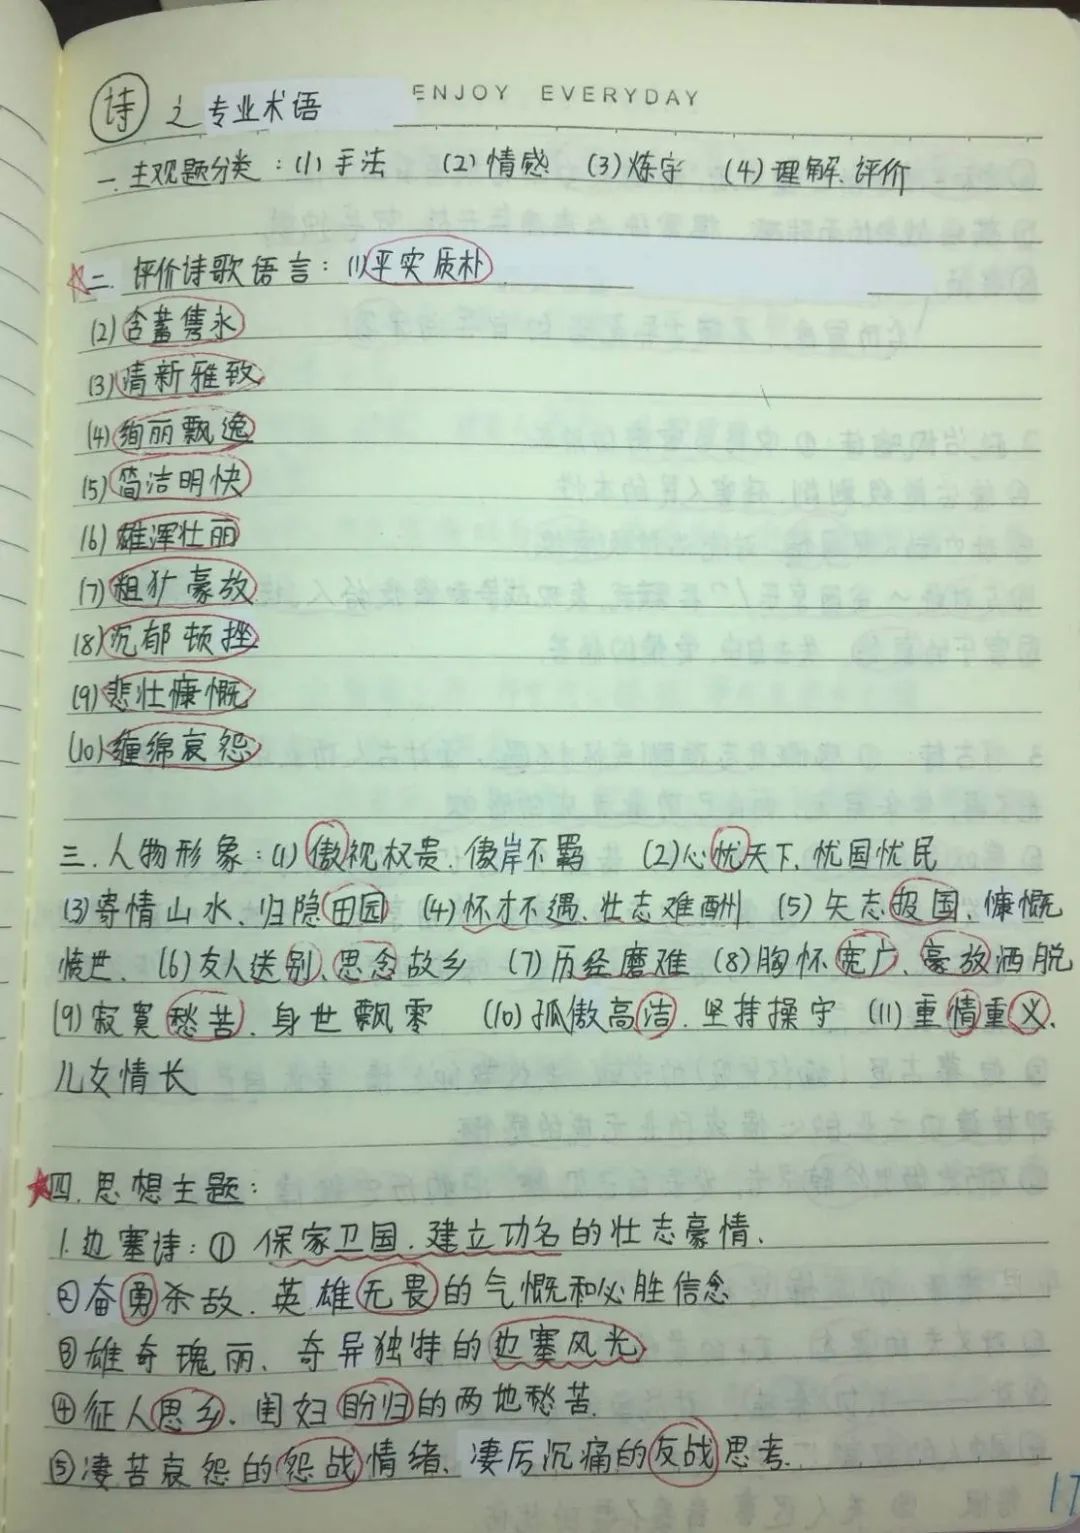 ENJOY EVERYDAY
诗之专业术语
一.主观题分类：(1)手法 (2)情感 (3)炼字 (4)理解、评价
二.评价诗歌语言：(1)平实质朴
(2)含蓄隽永
(3)清新雅致
(4)绚丽飘逸
(5)简洁明快
(6)雄浑壮丽
(7)粗犷豪放
(8)沉郁顿挫
(9)悲壮慷慨
(10)缠绵哀怨
三.人物形象：(1)傲视权贵、傲岸不羁 (2)心忧天下、忧国忧民
(3)寄情山水、归隐田园 (4)怀才不遇、壮志难酬 (5)矢志报国、慷慨
愤世、(6)友人送别、思念故乡 (7)历经磨难 (8)胸怀宽广、豪放洒脱
(9)寂寞愁苦、身世飘零 (10)孤傲高洁、坚持操守 (11)重情重义、
儿女情长
四.思想主题：
1.边塞诗：①保家卫国、建立功名的壮志豪情、
②奋勇杀敌、英雄无畏的气慨和必胜信念
③雄奇瑰丽、奇异独特的边塞风光
④征人思乡、闺妇盼归的两地愁苦.
⑤凄苦哀怨的怨战情绪、凄厉沉痛的反战思考.
17